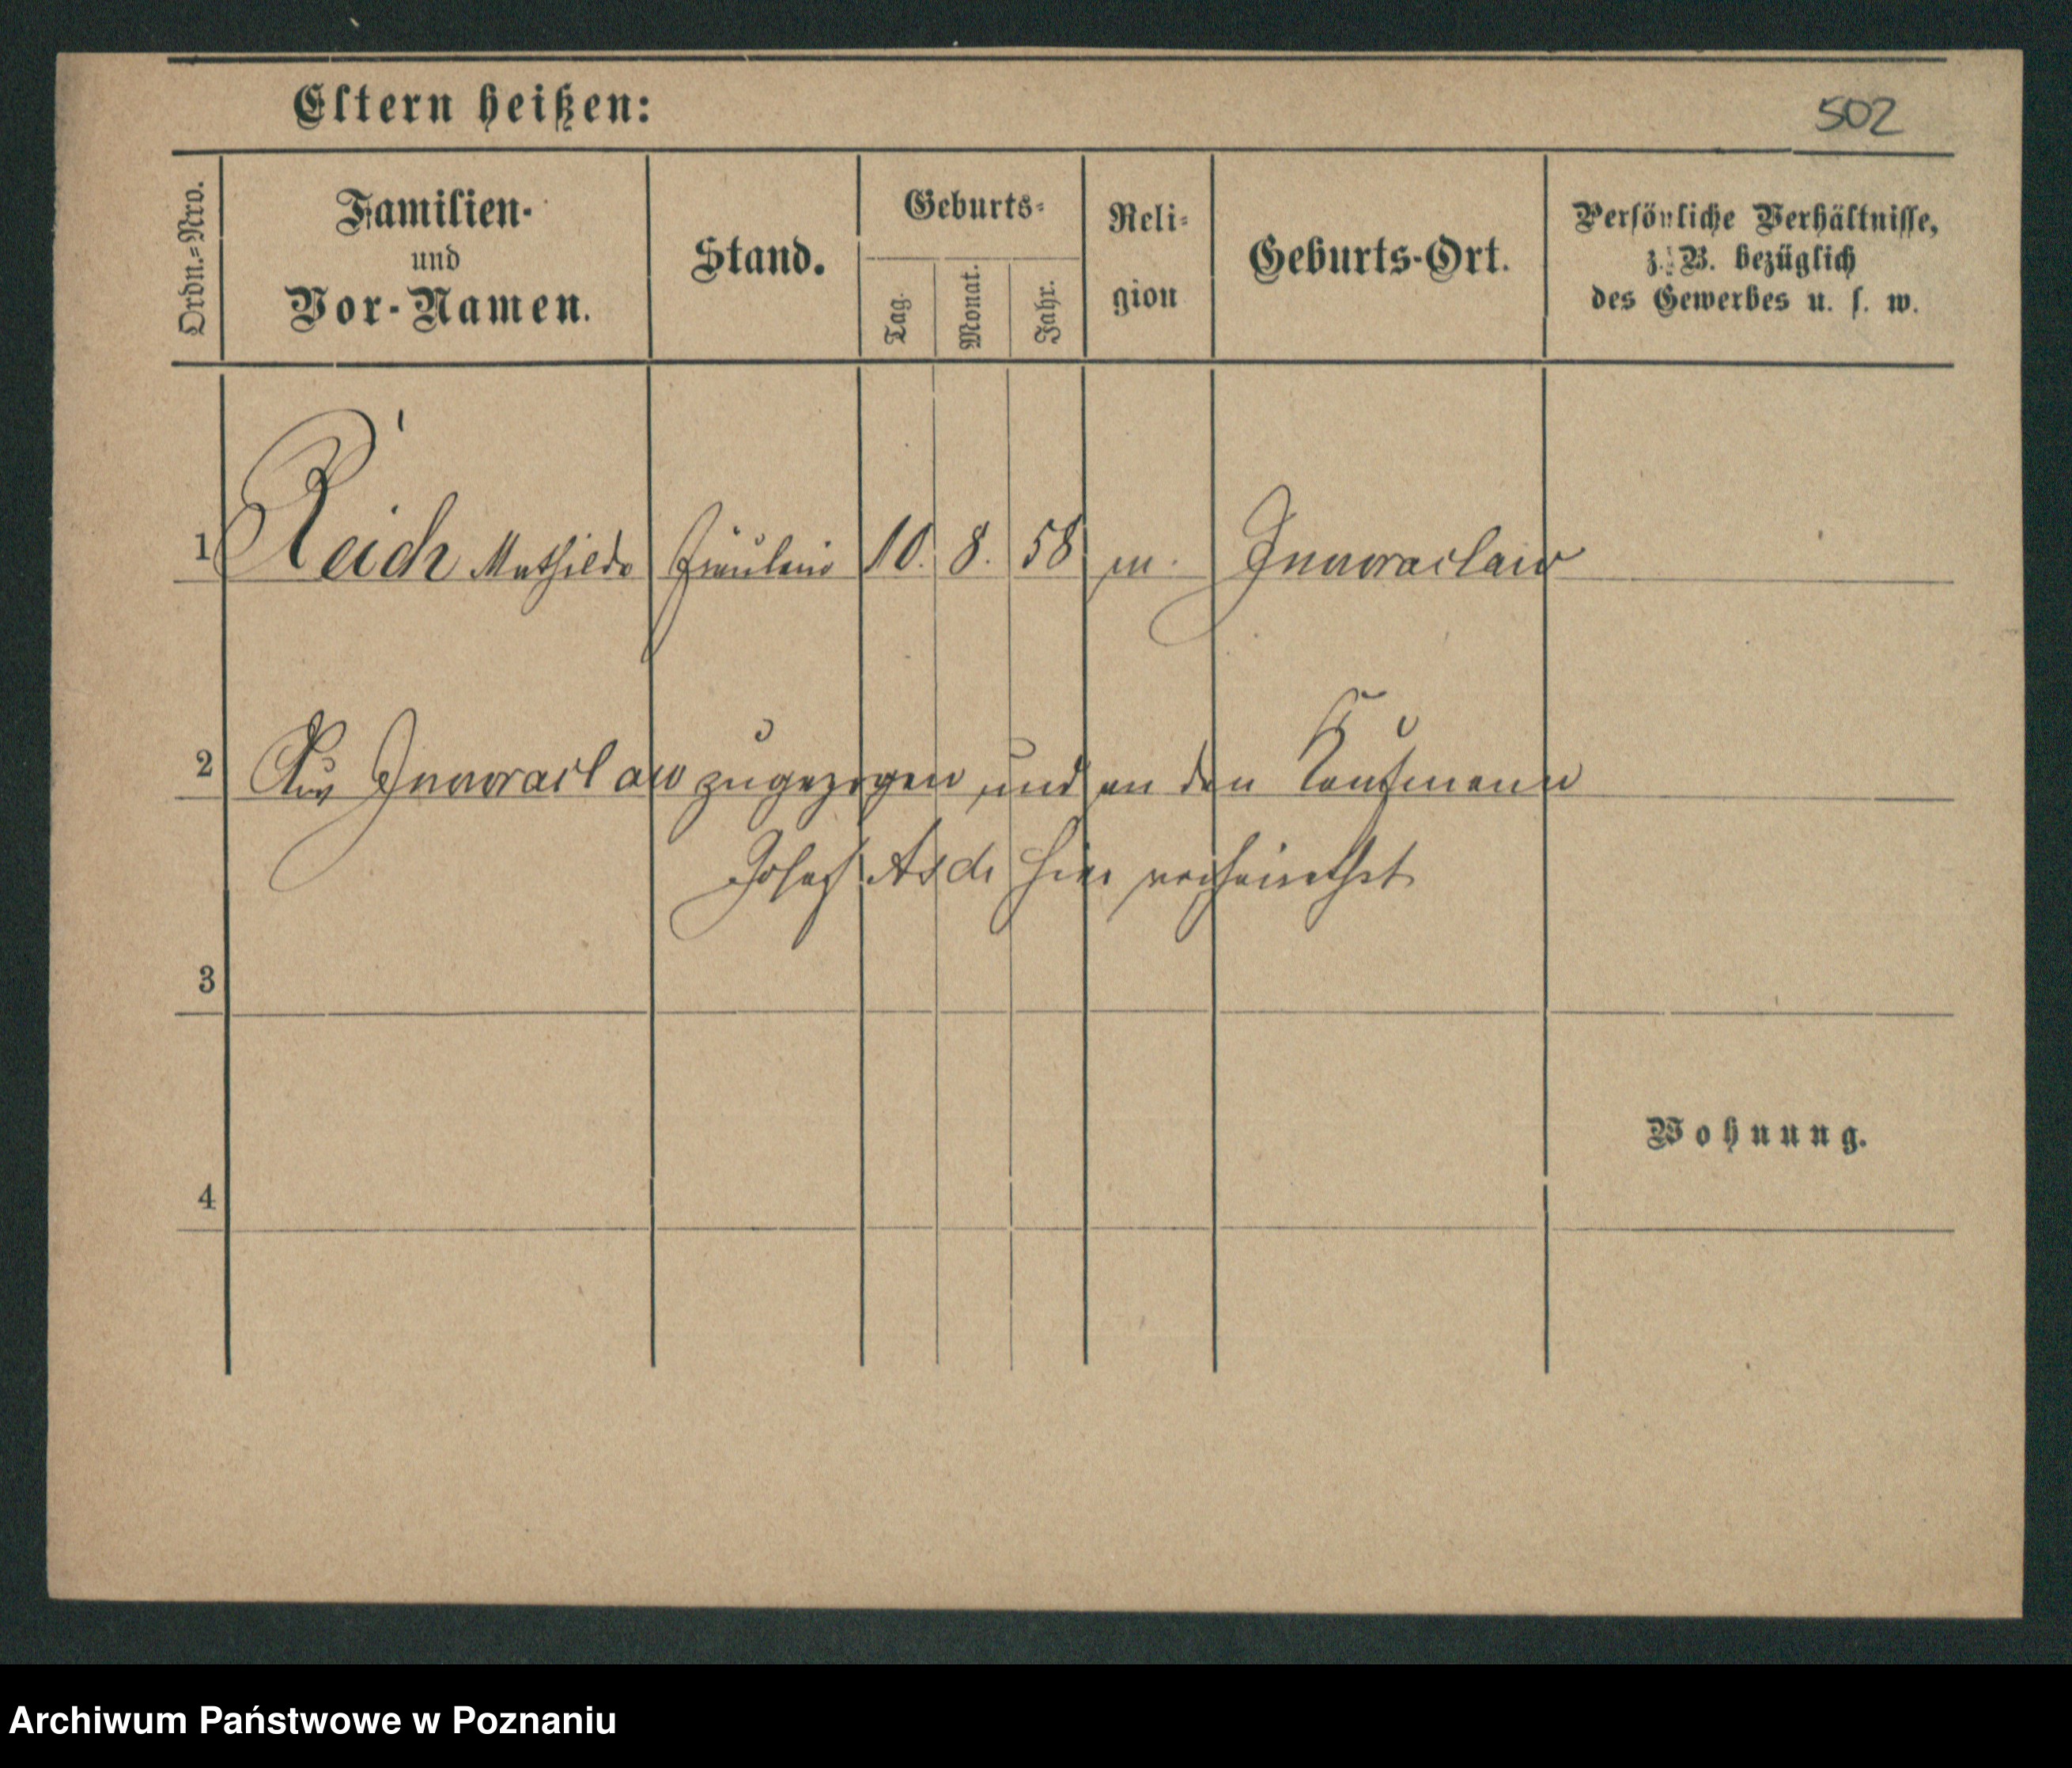 Eltern heißen:
502
Ordn.=Nro.
Familien-
und
Vor-Namen.
Stand.
Geburts=
Tag.
Monat.
Jahr.
Reli=
gion
Geburts-Ort.
Persönliche Verhältnisse,
z. B. bezüglich
des Gewerbes u. s. w.
1 Reich Mathilde Fräulein 10. 8. 58 m. Inowraclaw
2 Aus Inowraclaw zugezogen und an den Kaufmann
Josef Asch hier verheirathet
3
Wohnung.
4
Archiwum Państwowe w Poznaniu